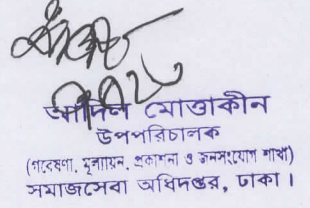 আদিল মোত্তাকীন
উপপরিচালক
(গবেষণা, মূল্যায়ন, প্রকাশনা ও জনসংযোগ শাখা)
সমাজসেবা অধিদপ্তর, ঢাকা।